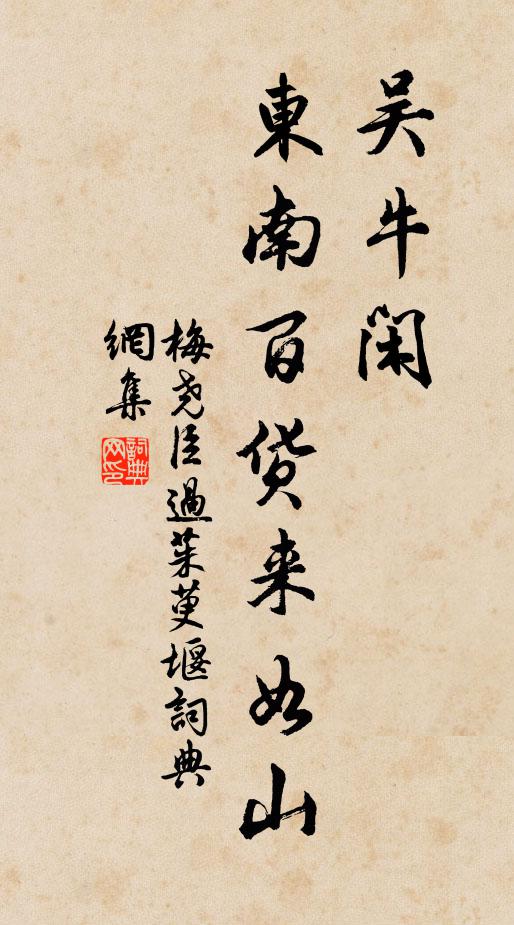 吴牛闲
東南百货来如山
梅尧臣過茱萸堰詞典
網集
詞典網印